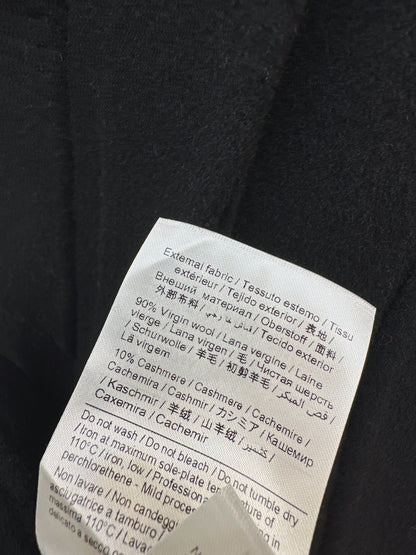 External fabric / Tessuto esterno / Tissu
extérieur / Tejido exterior / 表地 /
Внешний материал / Oberstoff / 面料 /
外部布料 / Tecido exterior
90% Virgin wool / Lana vergine / Laine
vierge / Lana virgen / 毛 / Чистая шерсть
/ Schurwolle / 羊毛 / 初剪羊毛 /
Lã virgem
10% Cashmere / Cashmere / Cachemire /
Cachemira / Cashmir / カシミア / Кашемир
/ Kaschmir / 羊绒 / 山羊绒 / كشمير /
Caxemira / Cachemir
Do not wash / Do not bleach / Do not tumble dry
/ Iron at maximum sole-plate temperature of
110°C / Iron, low / Professional
perchlorethene - Mild process
Non lavare / Non candegg
asciugatrice a tamburo /
massima 110°C / Lava
delicato a secco